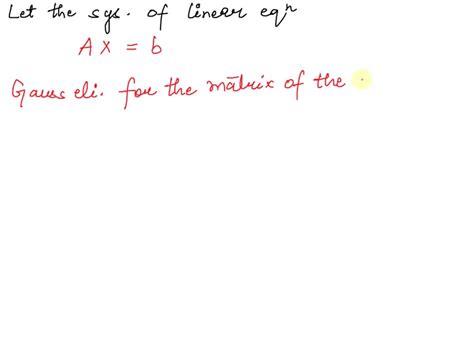 Let the sys. of linear eqⁿ
AX = b
Gauss eli. for the matrix of the